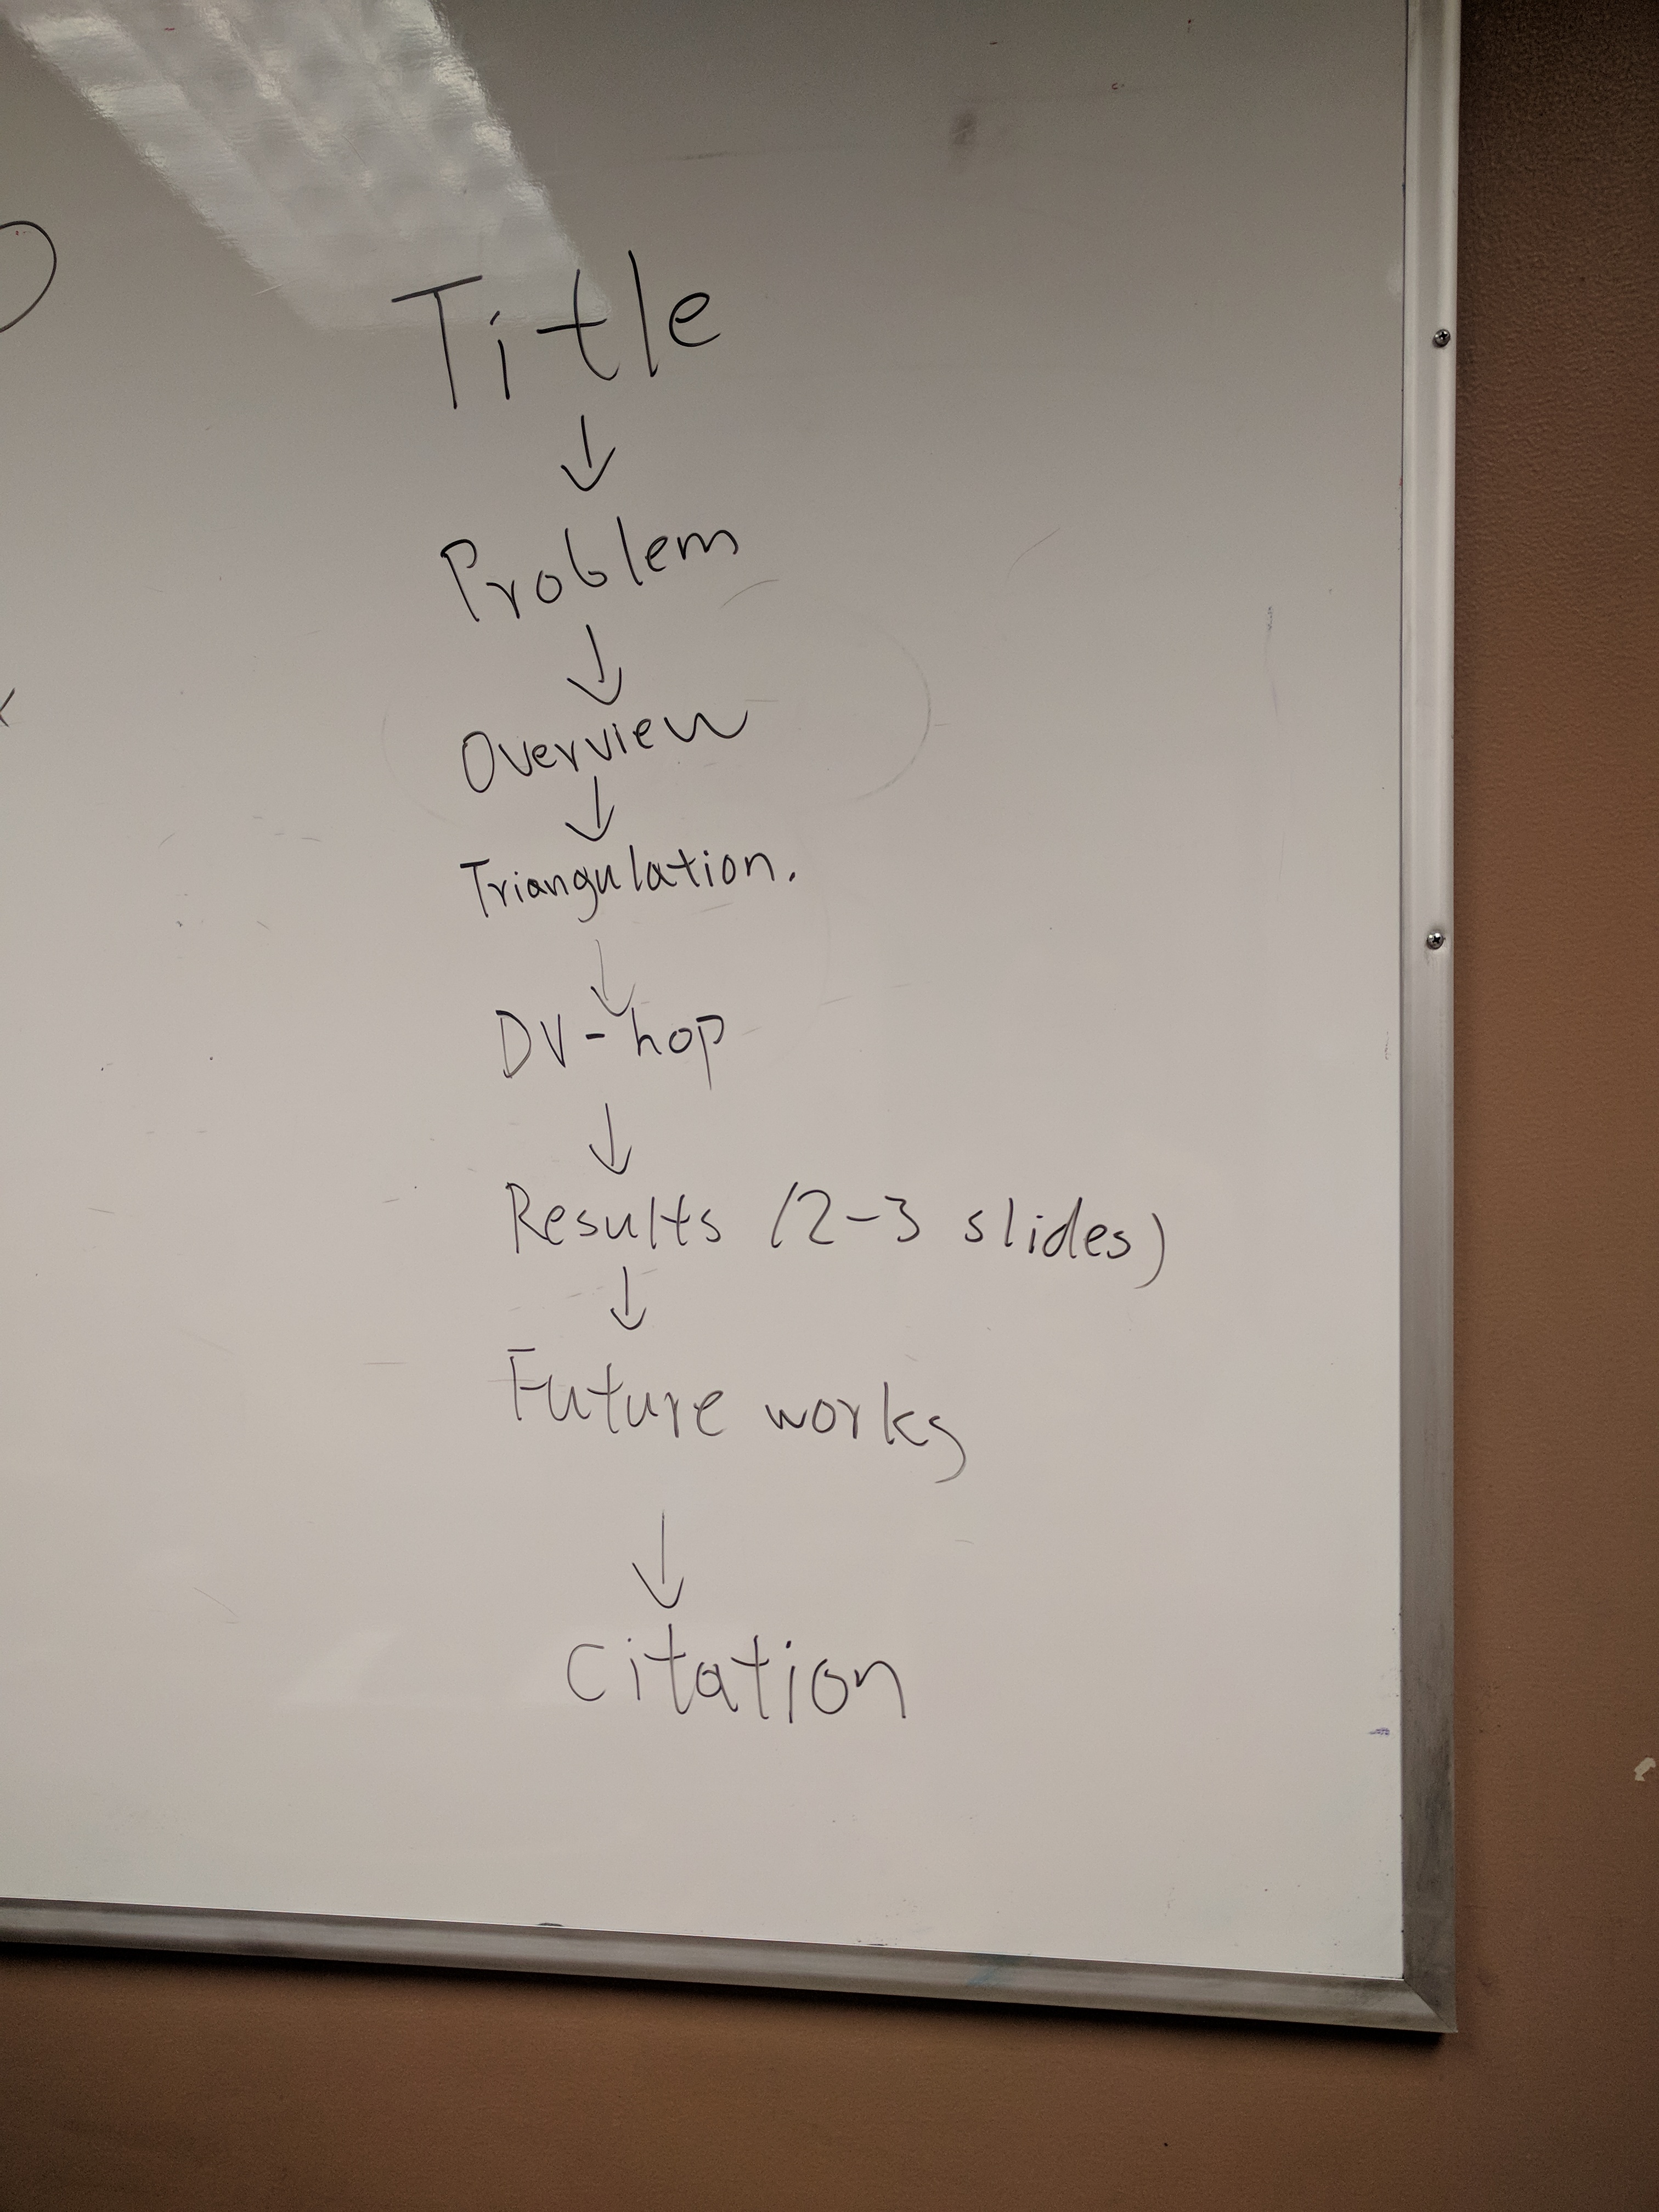 Title
↓
Problem
↓
Overview
↓
Triangulation.
↓
DV-hop
↓
Results (2-3 slides)
↓
Future works
↓
Citation